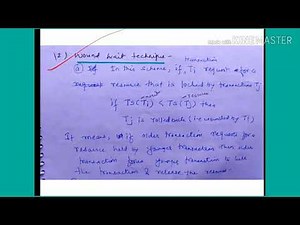 KINEMASTER
(2) Wound Wait technique -
transaction
(a) In this scheme, if, Ti request for a
resource that is locked by transaction Tj
if TS(Ti) < TS(Tj) then
Tj is rolled back (is wounded by Ti)
It means, if older transaction requests for a
resource held by younger transaction then older
transaction younger transaction to
the transaction & release the